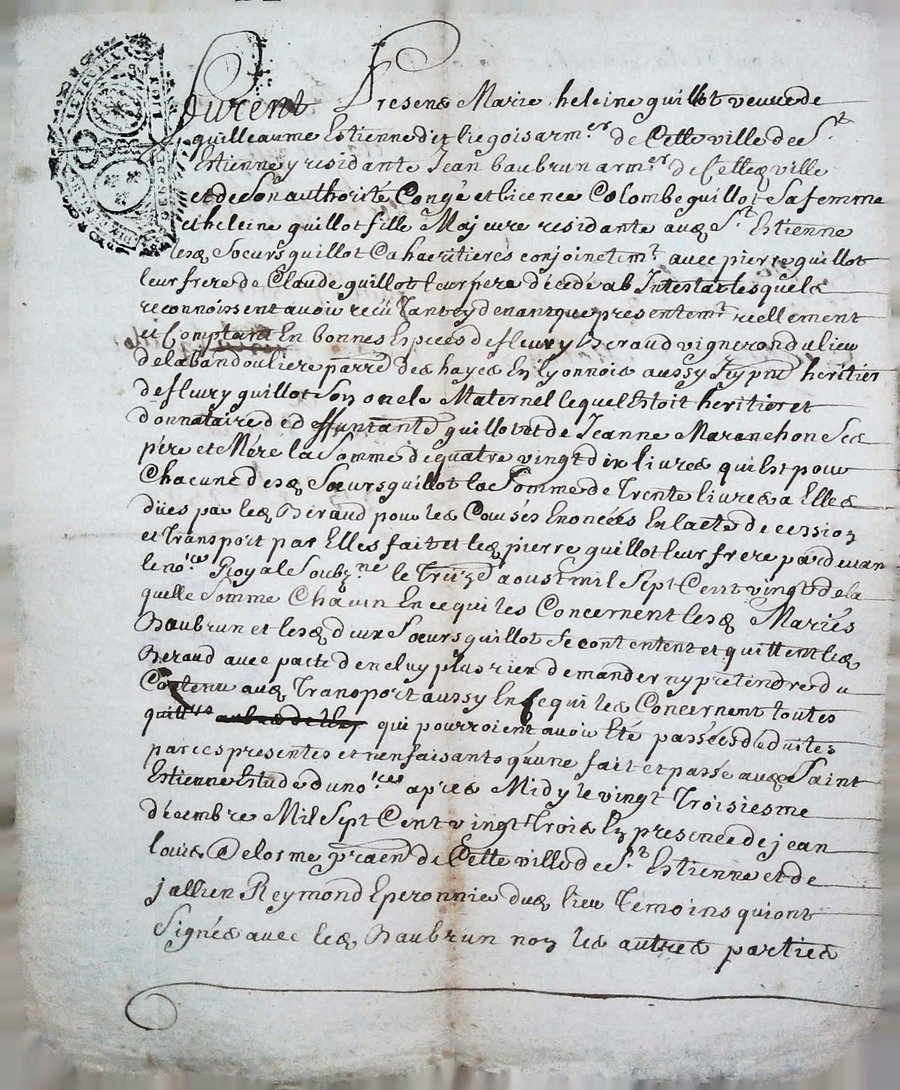 furent Presens Marie heleine guillot veuve de
guilleaume Estienne dit liegois arm.er de Cette ville de S.t
Estienne y residante Jean baubrun arm.er de Cette ville
et de Son authorité Congé et licence Colombe guillot Sa femme
et heleine guillot fille Majeure residante aud S.t Estienne
lesd Soeurs guillot Cohaeritieres conjoinctem.t avec pierre guillot
leur frere de Claude guillot leur père décédé ab Intestat lesquels
reconnoissent avoir reçu tant cy devant que presentem.t reellement
et Comptant En bonnes Especes de fleury Beraud vigneron du lieu
de la bandouliere parre des hayes En lyonnois aussy Icy pnt héritier
de fleury guillot Son oncle Maternel lequel Estoit heritier et
donnataire de deffunt guillot et de Jeanne Maranchon Ses
père et Mére la Somme de quatre vingt dix livres qui Est pour
Chacune desd Soeurs guillot la Somme de Trente livres a Elles
dües par led Béraud pour les Causes Enoncées En lacte de cession
et Transport par Elles fait et led pierre guillot leur frere pardevant
le no.re Royal Soubz.ne le Treize aoust mil Sept Cent vingt de la
quelle Somme Chacun En ce qui les Concernent lesd Mariés
Baubrun et lesd deux Soeurs guillot Se contentent et quittent led
Beraud avec pacte de ne luy plus rien demander ny prétendre du
Contenu aud Transport aussy En Ce qui les Concernent toutes
quitt.ces qui pourroient avoir Eté passées déduites
par ces presentes et n'en faisants qu'une fait et passé aud Saint
Estienne Estude du no.re apres Midy le vingt Troisiesme
décembre Mil Sept Cent vingt Trois En presence de jean
louis Delosme praen de Cette ville de S.t Estienne et de
jallien Reymond Eperonnier dud lieu Temoins qui ont
Signés avec led Baubrun non les autres parties